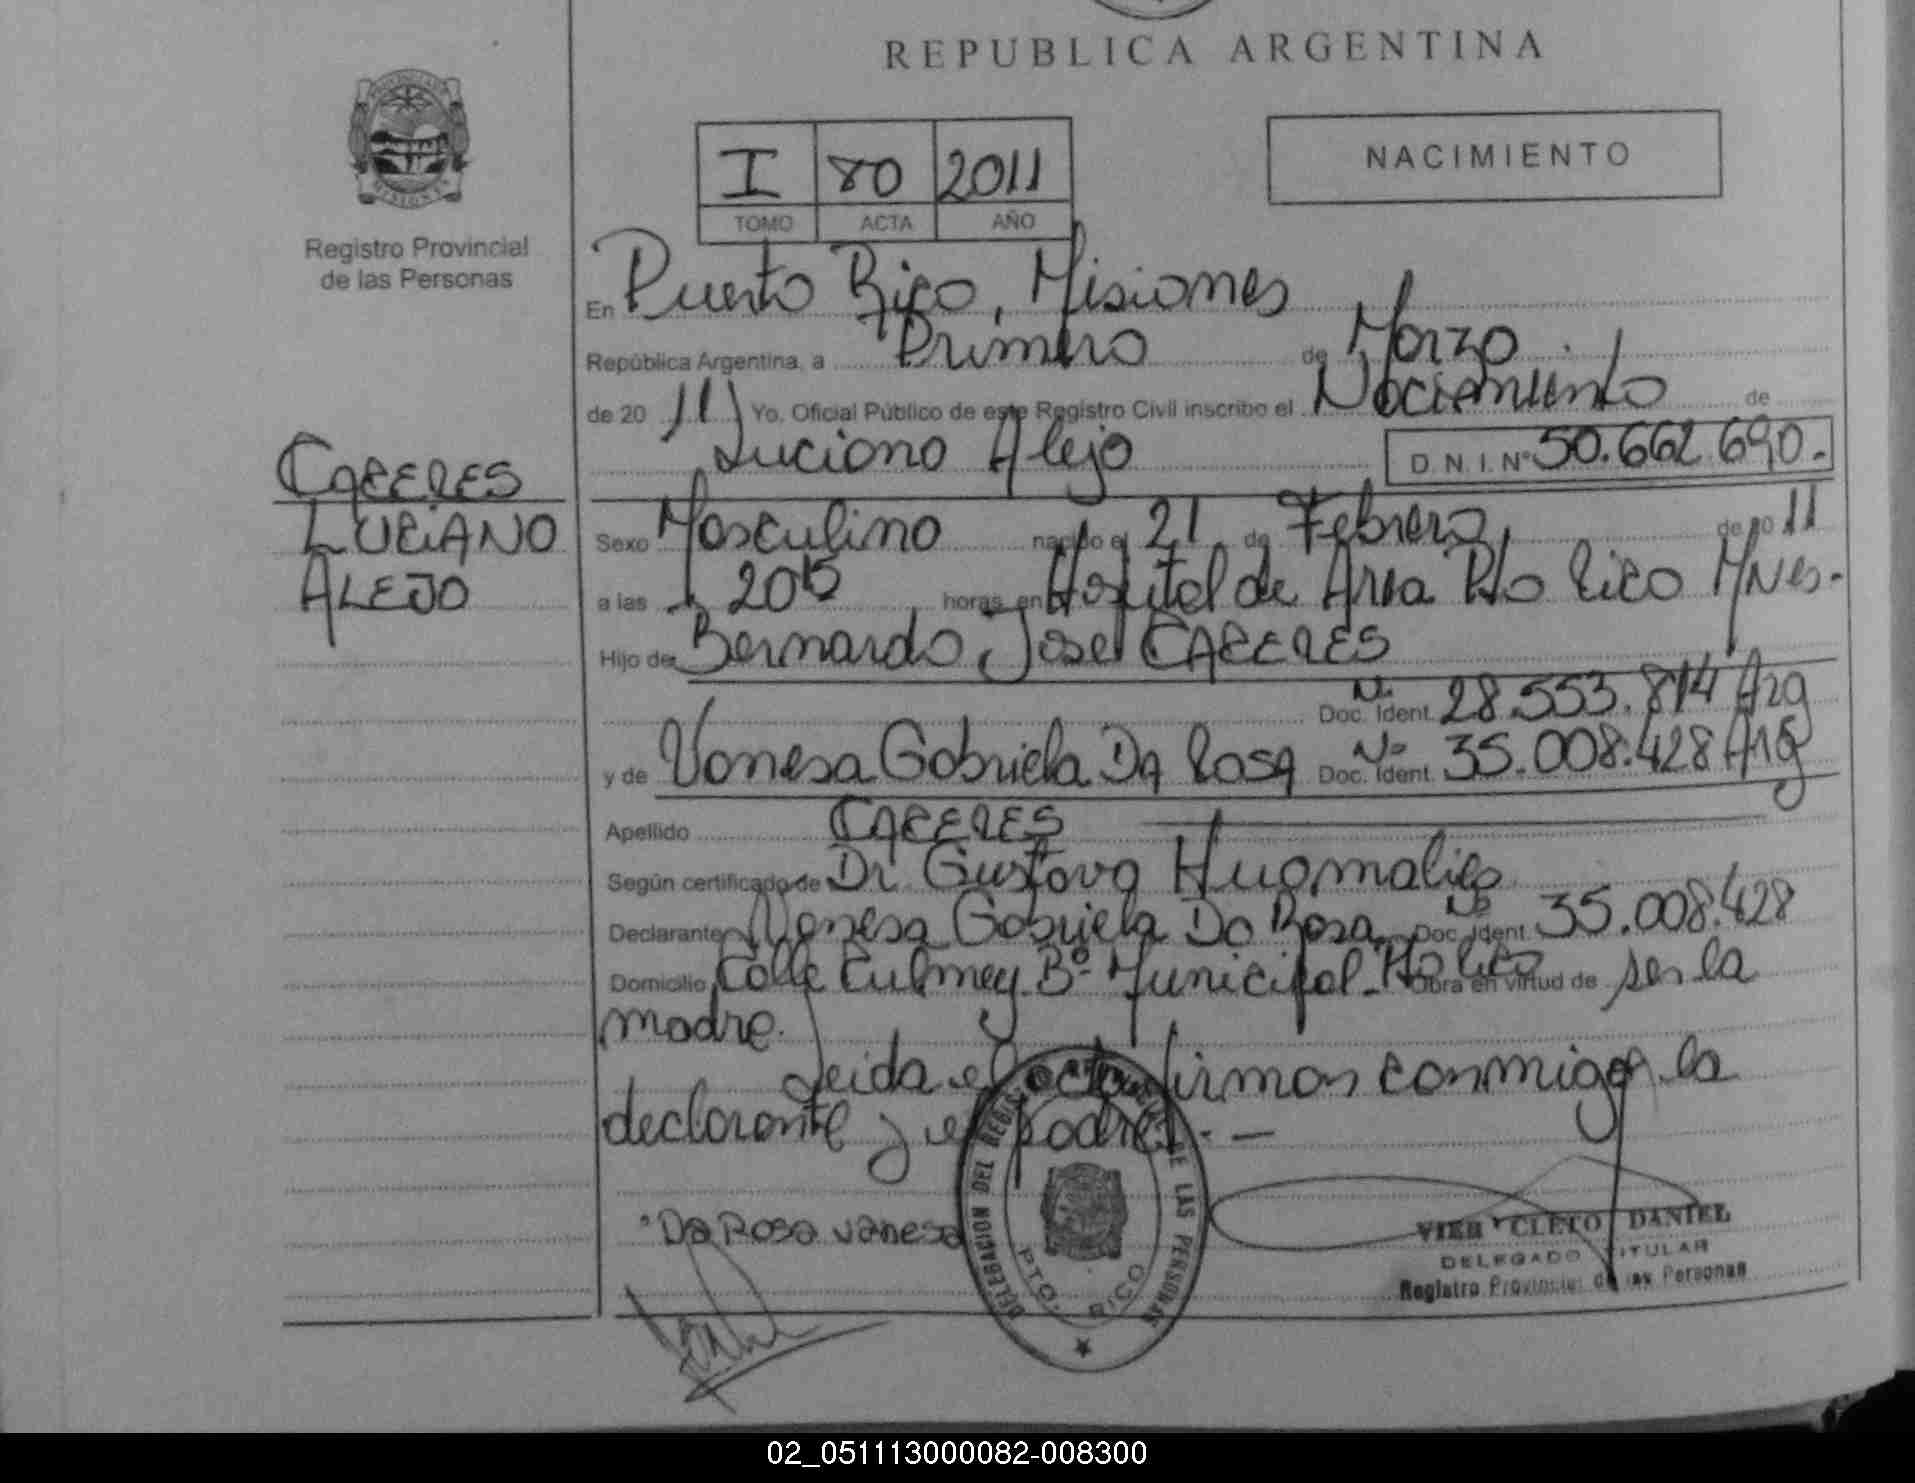 REPUBLICA ARGENTINA
NACIMIENTO
I 80 2011
TOMO ACTA AÑO
Registro Provincial
de las Personas
CACERES
LUCIANO
ALEJO
En Puerto Rico, Misiones
República Argentina, a Primero de Marzo
de 20 11 Yo, Oficial Público de este Registro Civil inscribo el Nacimiento de
Luciano Alejo D.N.I. Nº 50.662.690.-
Sexo Masculino nacido el 21 de Febrero de 20 11
a las 2015 horas en Hospital de Area Pto Rico Mnes.-
Hijo de Bernardo José CACERES
Doc. Ident. Nº 28.553.814 Arg
y de Vanesa Gabriela Da Rosa Doc. Ident. Nº 35.008.428 Arg
Apellido CACERES
Según certificado de Dr. Gustavo
Declarante Vanesa Gabriela Da Rosa Doc. Ident. Nº 35.008.428
Domicilio Calle Culmey Bº Municipal - Pto Rico Obra en virtud de ser la
madre.
Leida el acta firman conmigo la
declarante y el padre.-
Da Rosa Vanesa
DELEGACION DEL REGISTRO PROVINCIAL DE LAS PERSONAS
PTO. RICO
VIER CLETO DANIEL
DELEGADO TITULAR
Registro Provincial de las Personas
02_051113000082-008300